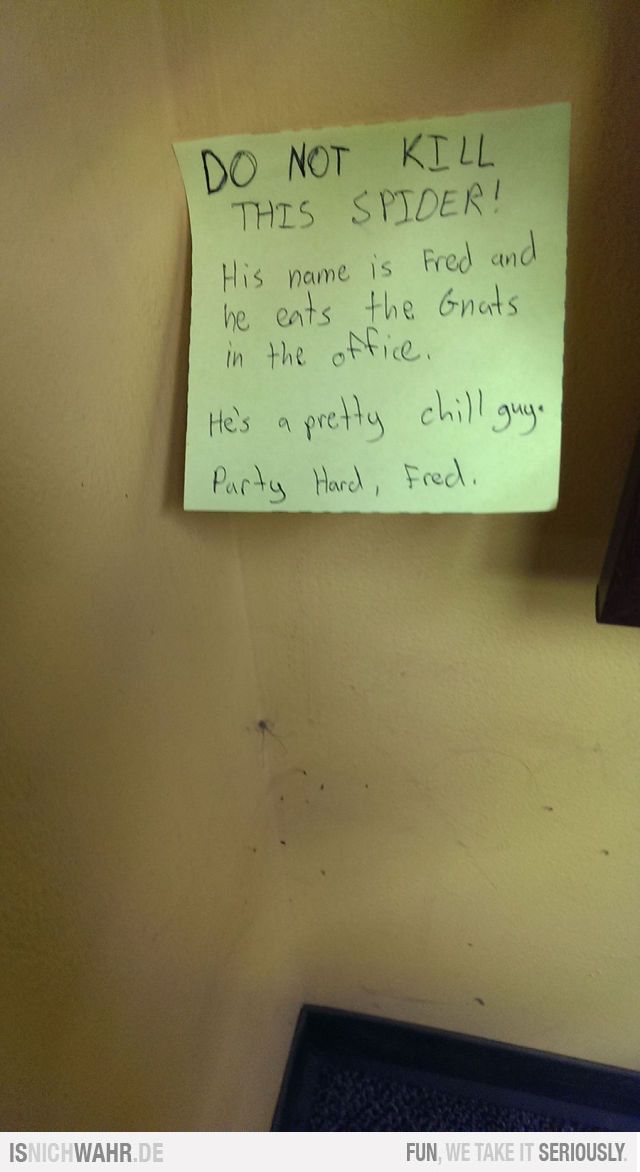 DO NOT KILL
THIS SPIDER!
His name is Fred and
he eats the Gnats
in the office.
He's a pretty chill guy.
Party Hard, Fred.
ISNICHWAHR.DE
FUN, WE TAKE IT SERIOUSLY.